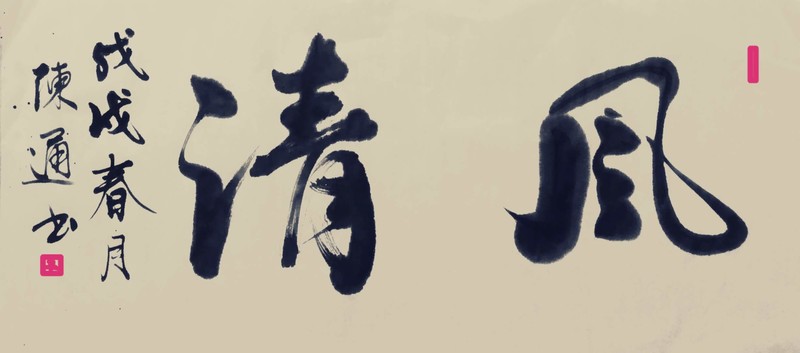 風清
戊戌春月
陳通书